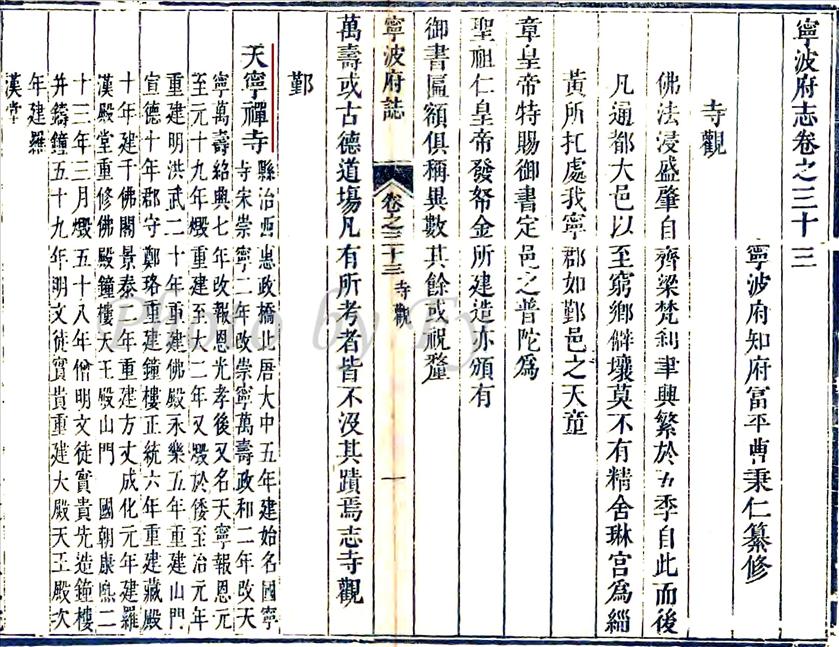 寧波府志卷之三十三
寧波府知府富平曹秉仁纂修
寺觀
佛法浸盛肇自齊梁梵刹聿興繁於五季自此而後
凡通都大邑以至窮鄉僻壤莫不有精舍琳宫為緇
黃所托處我寧郡如鄞邑之天童
章皇帝特賜御書定邑之普陀爲
聖祖仁皇帝發帑金所建造亦頒有
御書匾額俱稱異數其餘或祝釐
寧波府誌
卷之三十三 寺觀
一
萬壽或古德道塲凡有所考者皆不沒其蹟焉志寺觀
鄞
天寧禪寺
縣治西惠政橋北唐大中五年建始名國寧
寺宋崇寧二年改崇寧萬壽政和二年改天
寧萬壽紹興七年改報恩光孝後又名天寧報恩元
至元十九年燬重建至大二年又燬於倭至治元年
重建明洪武二十年重建佛殿永樂五年重建山門
宣德十年郡守鄭珞重建鐘樓正統六年重建藏殿
十年建千佛閣景泰二年重建方丈成化元年建羅
漢殿堂重修佛殿鐘樓天王殿山門 國朝康熙二
十三年三月燬五十八年僧明文徒實貴先造鐘樓
并鑄鐘五十九年明文徒實貴重建大殿天王殿次
年建羅
漢堂
Photo by Ty